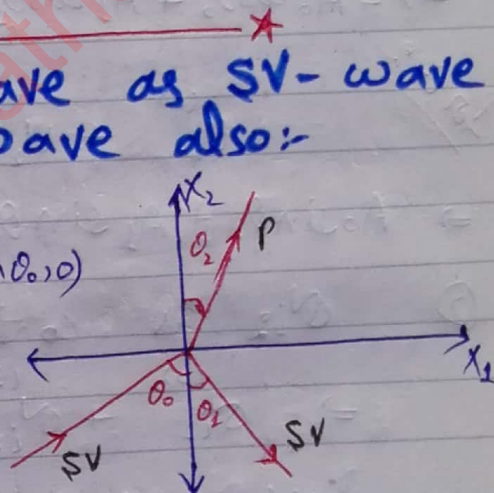 ave as SV-wave
ave also:-
X₂
θ₂ P
θ₀,0)
X₁
θ₀ θ₁
SV SV